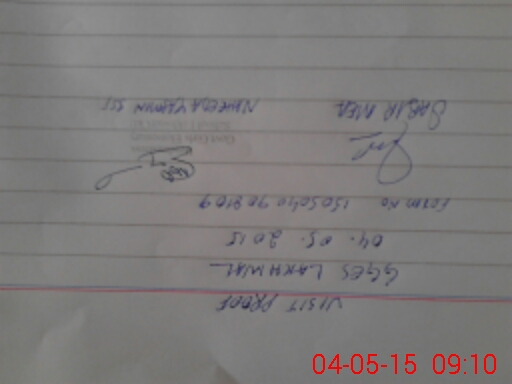 VISIT PROOF
GGES LAKHWAL
04.05.2015
Form No 1505040908109
SABIR MEA NAHEEDA YASMIN SST
04-05-15 09:10